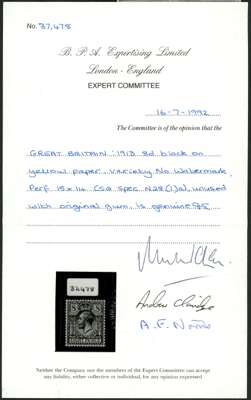 No. 37,478
B. P. A. Expertising Limited
London - England
EXPERT COMMITTEE
16-7-1992
The Committee is of the opinion that the
GREAT BRITAIN: 1913 3d black on
yellow paper. Variety No Watermark,
Perf 15 x 14 (SG Spec N28(1)a), unused
with original gum, is genuine
37478
Andrew Claridge
A. F. Norris
Neither the Company nor the members of the Expert Committee can accept
any liability, either collective or individual, for any opinion expressed